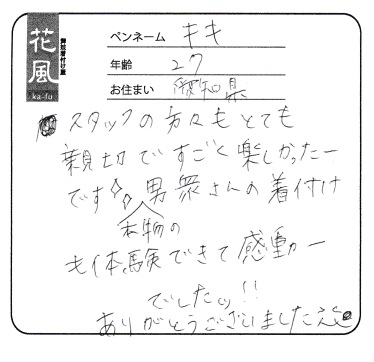 花風
舞妓着付け室
ka-fu
ペンネーム キキ
年齢 27
お住まい 愛知県
スタッフの方々もとても
親切ですごく楽しかったー
です 男衆さんの着付け
本物の
も体験できて感動ー
でしたッ!!
ありがとうございました